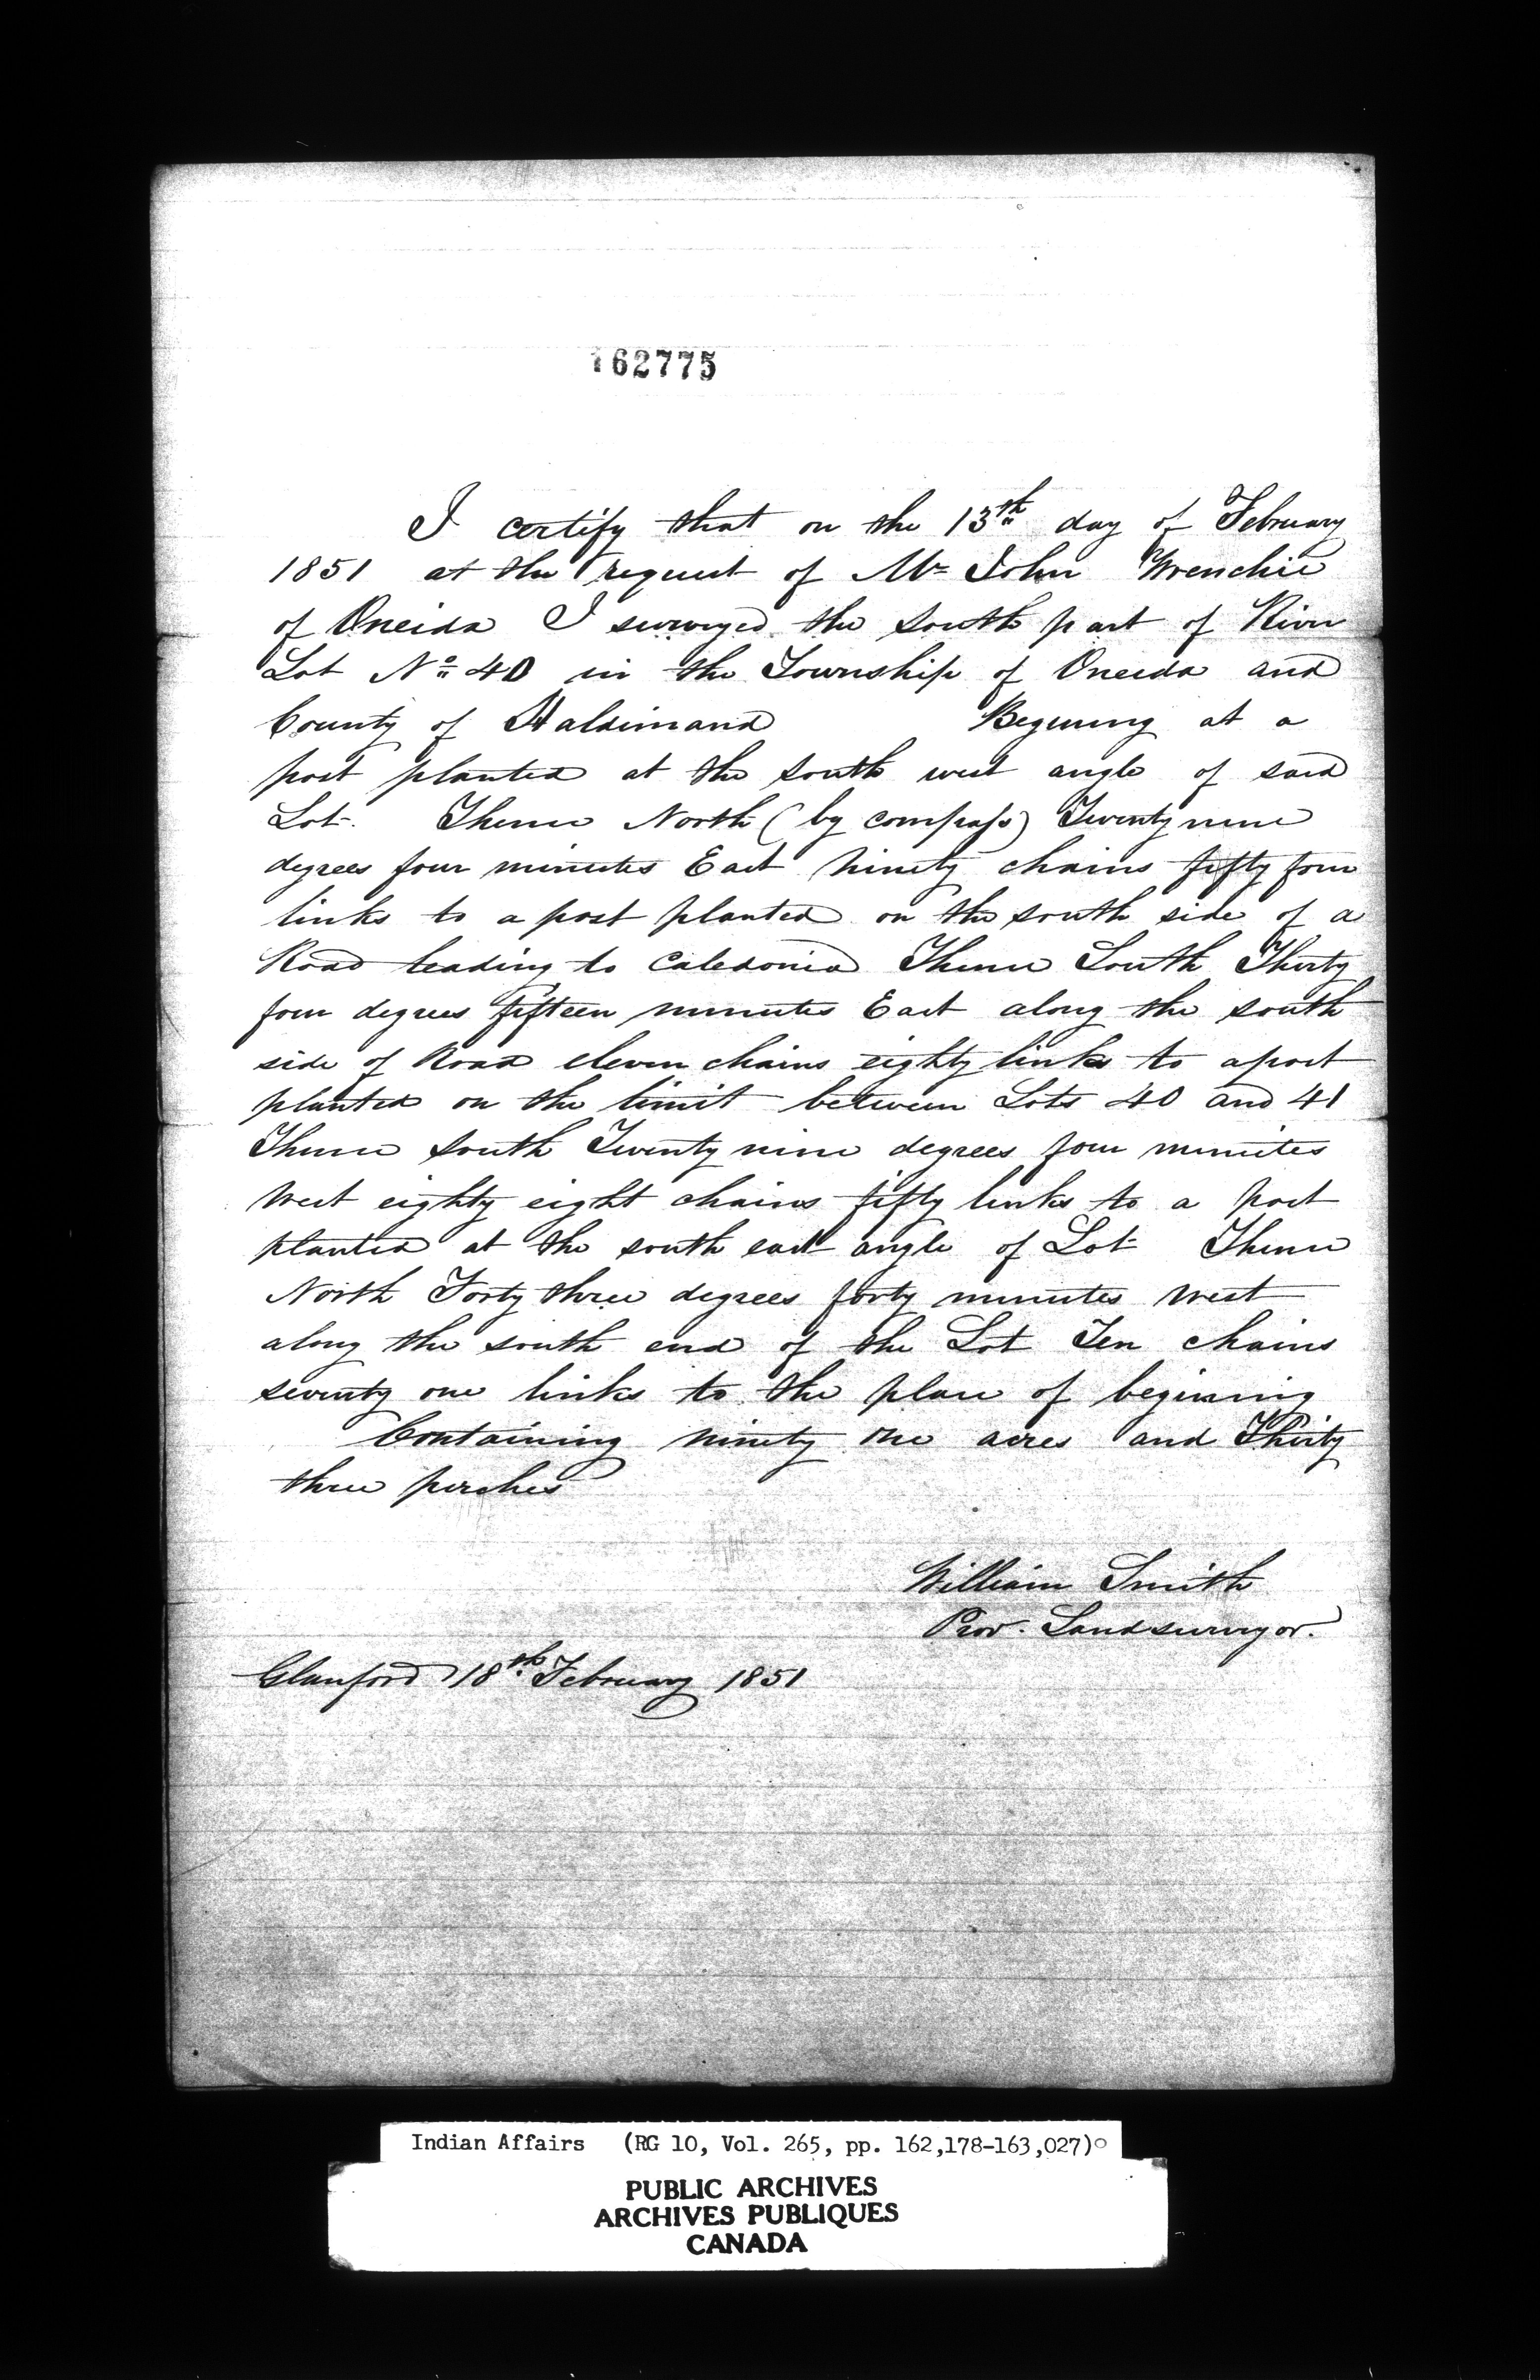 162775
I certify that on the 13th day of February
1851 at the request of Mr John Wrenchie
of Oneida I surveyed the south part of River
Lot No 40 in the Township of Oneida and
County of Haldimand Begining at a
post planted at the south west angle of said
Lot. Thence North (by compass) Twenty nine
degrees four minutes East ninety chains fifty four
links to a post planted on the south side of a
Road leading to Caledonia Thence South Thirty
four degrees fifteen minutes East along the south
side of Road eleven chains eighty links to a post
planted on the limit between Lots 40 and 41
Thence South Twenty nine degrees four minutes
West eighty eight chains fifty links to a post
planted at the south east angle of Lot Thence
North Forty three degrees forty minutes West
along the south end of the Lot Ten chains
seventy one links to the place of begining
Containing ninety one acres and Thirty
three perches
William Smith
Prov. Landsurveyor.
Glanford 18th February 1851
Indian Affairs (RG 10, Vol. 265, pp. 162,178-163,027)
PUBLIC ARCHIVES
ARCHIVES PUBLIQUES
CANADA